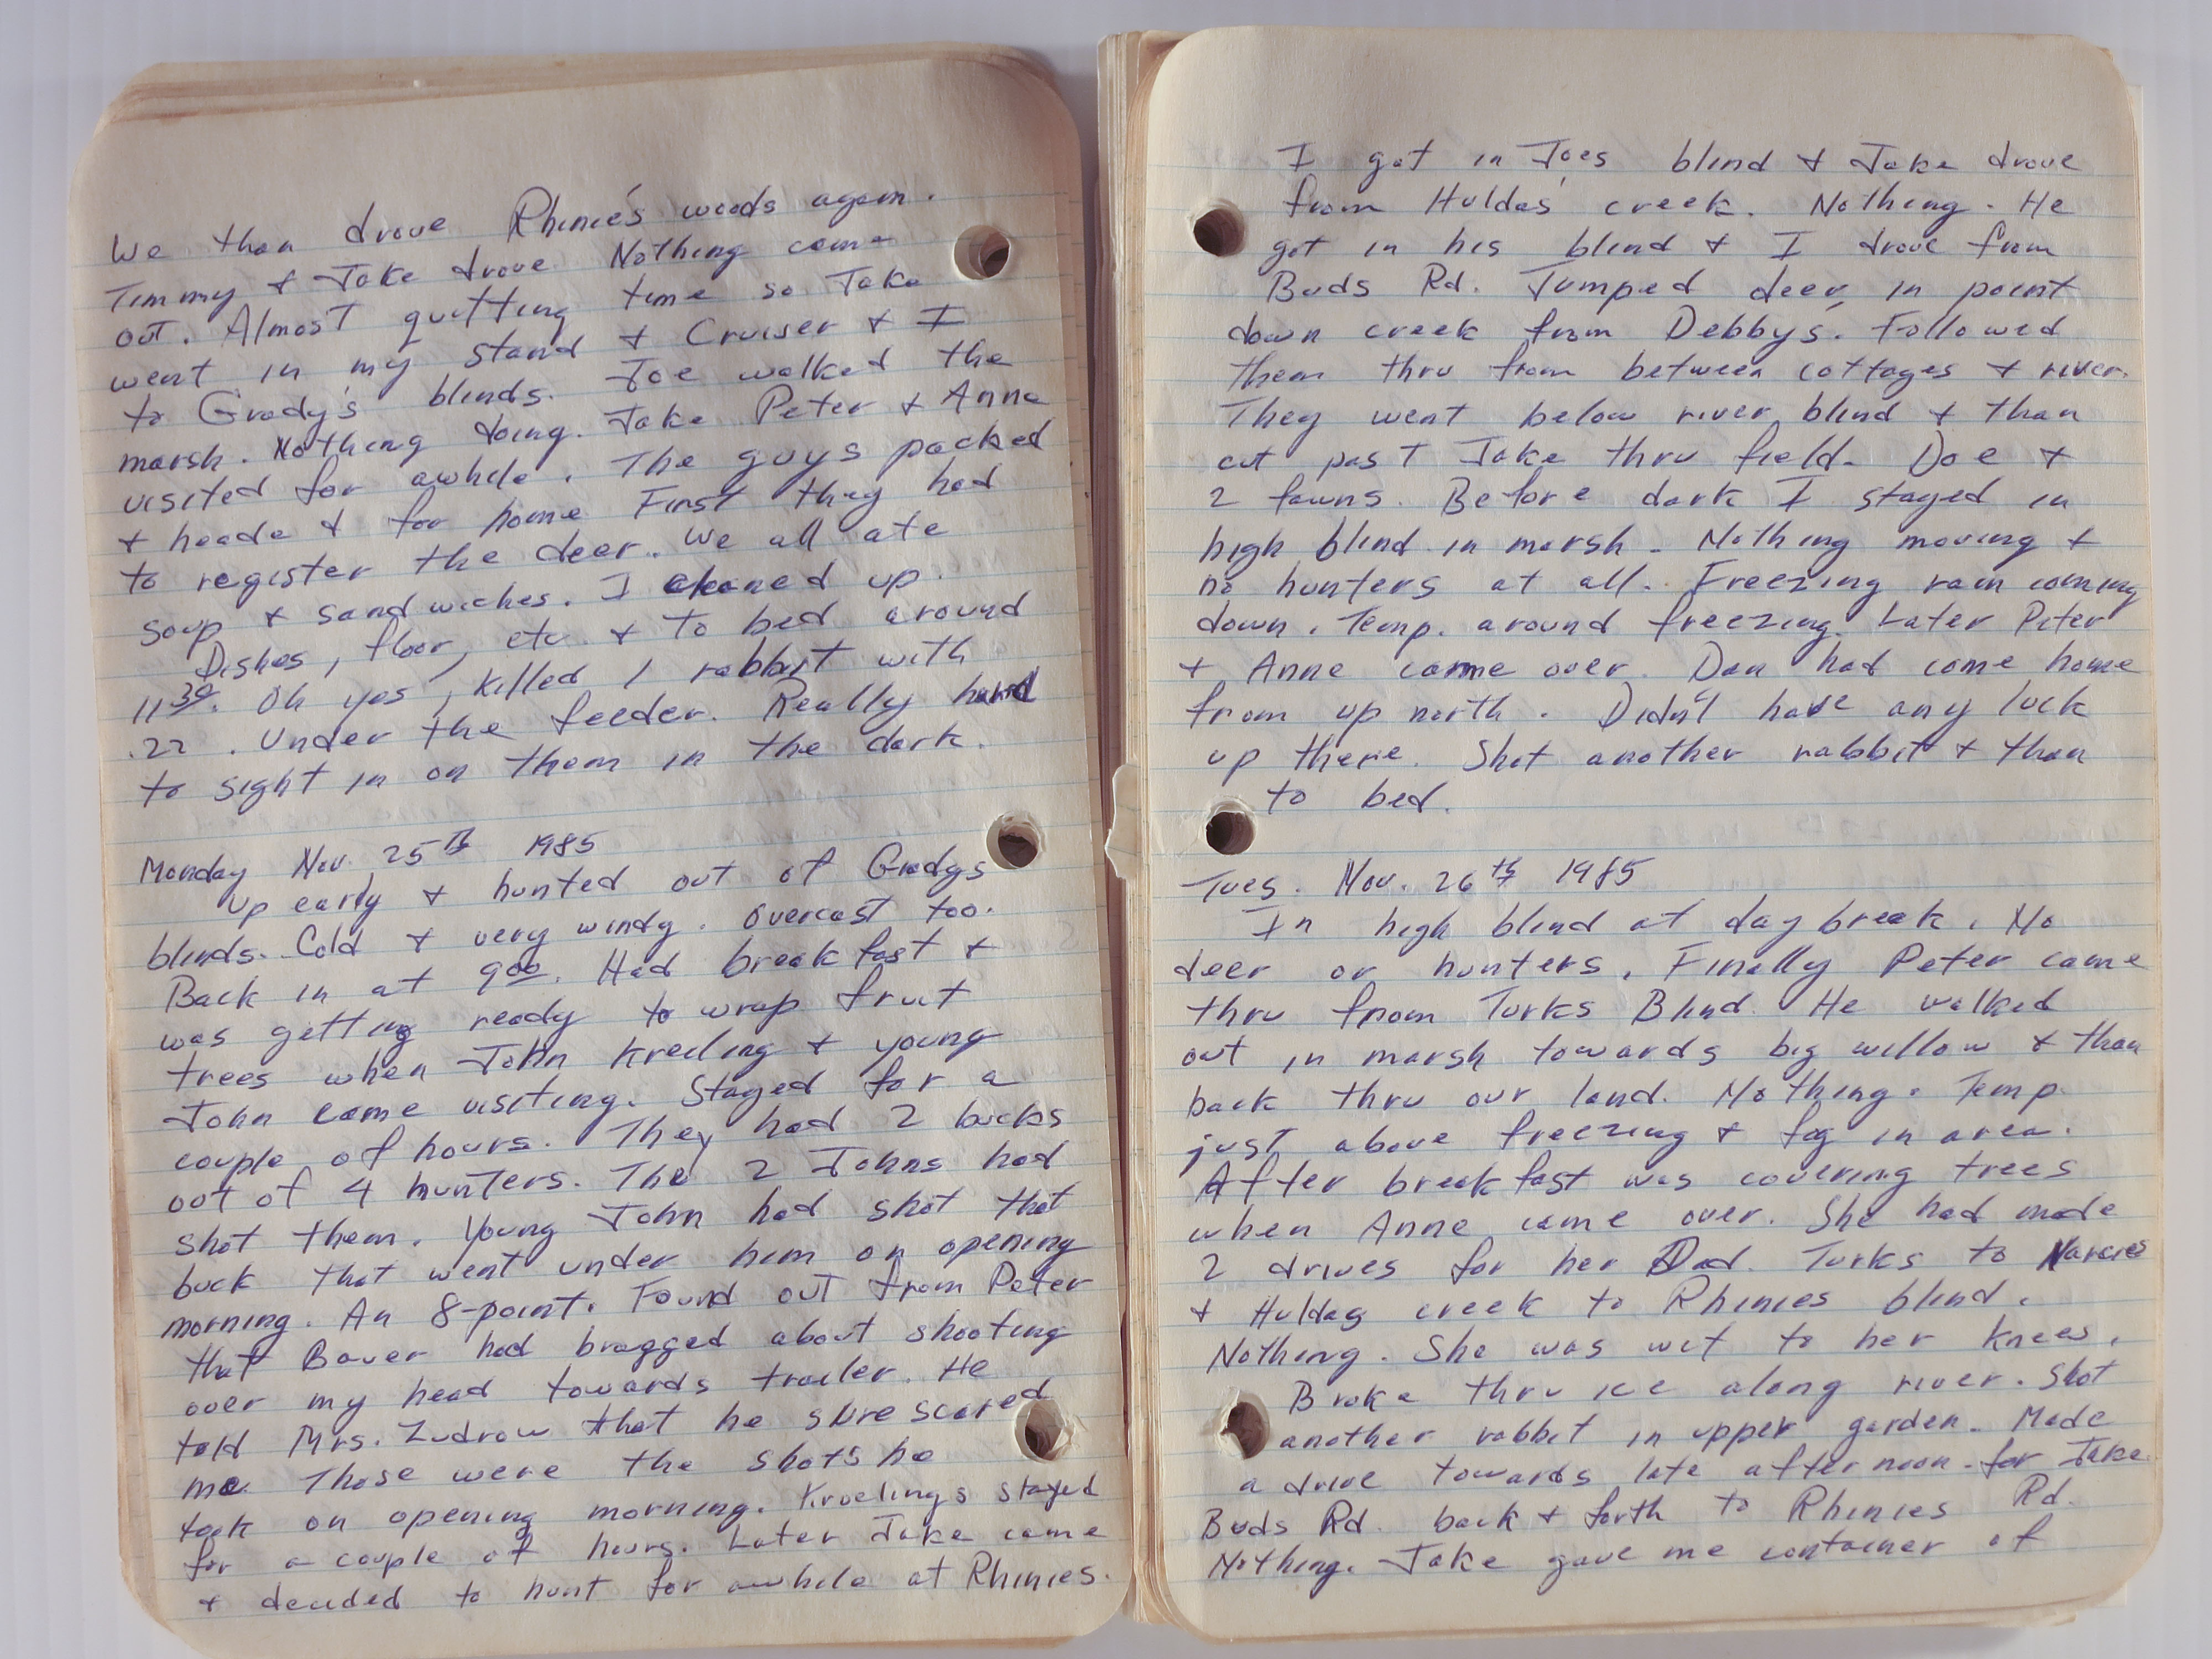 We than drove Rhinie's woods again.
Timmy & Jake drove. Nothing came
out. Almost quitting time so Jake
went in my stand & Cruiser & I
to Grady's blinds. Joe walked the
marsh. Nothing doing. Jake Peter & Anne
visited for awhile. The guys packed
& heade d for home First they had
to register the deer. We all ate
soup & sandwiches. I cleaned up.
Dishes, floor, etc & to bed around
11 30. Oh yes, killed 1 rabbit with
.22. Under the feeder. Really hard
to sight in on them in the dark.
Monday Nov. 25th 1985
Up early & hunted out of Gradys
blinds. Cold & very windy. Overcast too.
Back in at 900. Had breakfast &
was getting ready to wrap fruit
trees when John Kreeling & young
John came visiting. Stayed for a
couple of hours. They had 2 bucks
out of 4 hunters. The 2 Johns had
shot them. Young John had shot that
buck that went under him on opening
morning. An 8-point. Found out from Peter
that Bauer had bragged about shooting
over my head towards trailer. He
told Mrs. Zudrow that he sure scared
me. Those were the shots he
took on opening morning. Kroelings stayed
for a couple of hours. Later Jake came
& decided to hunt for awhile at Rhinies.
I got in Joes blind & Jake drove
from Huldas' creek. Nothing. He
got in his blind & I drove from
Buds Rd. Jumped deer in point
down creek from Debby's. Followed
them thru from between cottages & river.
They went below river blind & than
cut past Jake thru field. Doe &
2 fawns. Before dark I stayed in
high blind in marsh. Nothing moving &
no hunters at all. Freezing rain coming
down. Temp. around freezing. Later Peter
& Anne came over. Dan had come home
from up north. Didn't have any luck
up there. Shot another rabbit & than
to bed.
Tues. Nov. 26th 1985
In high blind at day break. No
deer or hunters. Finally Peter came
thru from Turks Blind. He walked
out in marsh towards big willow & than
back thru our land. Nothing. Temp.
just above freezing & fog in area.
After breakfast was covering trees
when Anne came over. She had made
2 drives for her Dad. Turks to Narcies
& Huldas creek to Rhinies blind.
Nothing. She was wet to her knees.
Broke thru ice along river. Shot
another rabbit in upper garden. Made
a drive towards late afternoon for Jake.
Buds Rd. back & forth to Rhinies Rd.
Nothing. Jake gave me container of